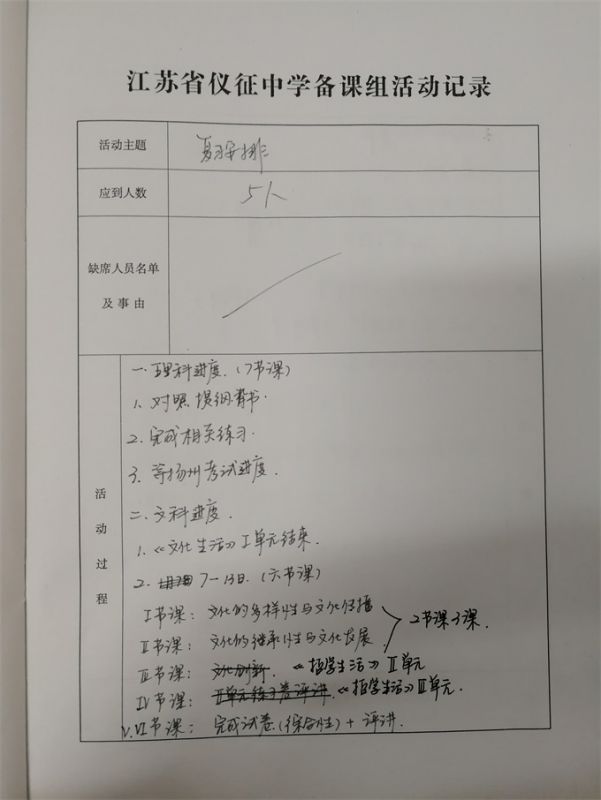 江苏省仪征中学备课组活动记录
活动主题 复习安排
应到人数 5人
缺席人员名单
及事由
活动过程
一.理科进度.(7节课)
1. 对照提纲背书.
2. 完成相关练习.
3. 等扬州考试进度.
二.文科进度.
1.《文化生活》I单元结束.
2. 7-13日.(六节课)
I节课: 文化的多样性与文化传播
II节课: 文化的继承性与文化发展
2节课3课.
III节课: 文化创新 《哲学生活》II单元
IV节课: II单元练习卷评讲.《哲学生活》III单元.
V.VI节课: 完成试卷(综合性)+评讲.